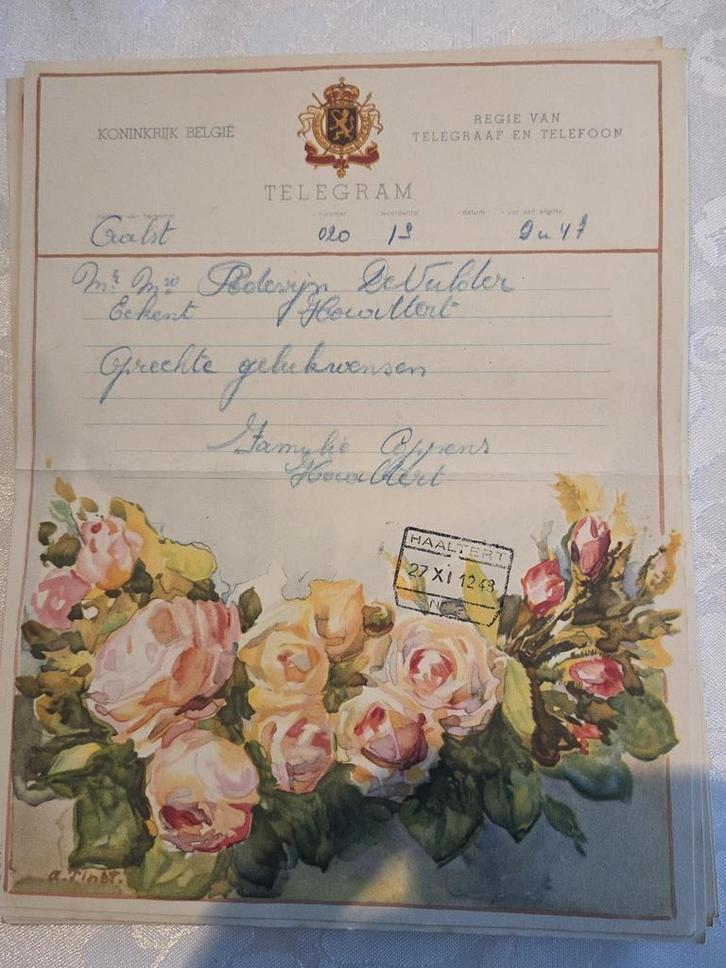 KONINKRIJK BELGIË
REGIE VAN
TELEGRAAF EN TELEFOON
TELEGRAM
nummer woordental datum uur van afgifte
Aalst 020 19 9u47
Mr Mw Bodewijn DeVulder
Eekent Haaltert
Oprechte gelukwensen
Familie Coppens
Haaltert
HAALTERT
27 XI 12 48
A. Pinet.